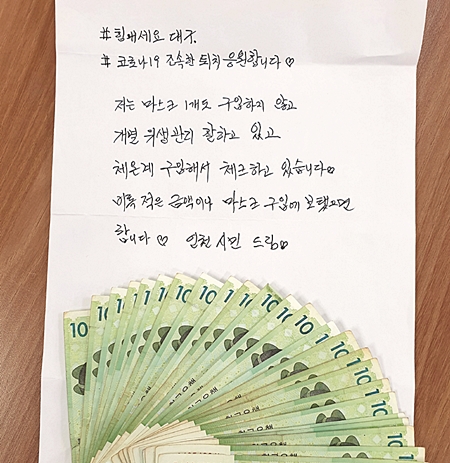 #힘내세요 대구
#코로나19 조속한 퇴치 응원합니다♡
저는 마스크 1개도 구입하지 않고
개별 위생관리 잘하고 있고
체온계 구입해서 체크하고 있습니다
비록 적은 금액이나 마스크 구입에 보탰으면
합니다♡ 인천 시민 드림♡
10 10 10 10 10 10 10 10 10